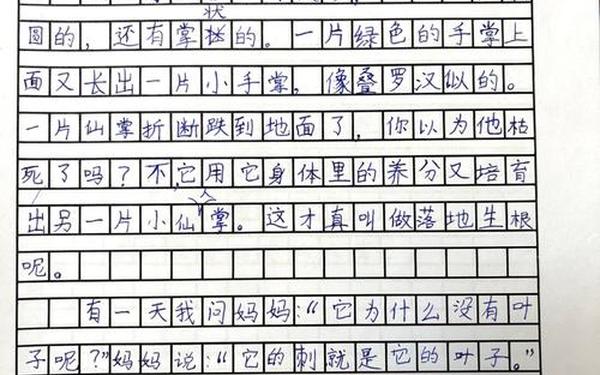 状
圆的，还有掌的。一片绿色的手掌上
面又长出一片小手掌，像叠罗汉似的。
一片仙掌折断跌到地面了，你以为他枯
死了吗？不，它用它身体里的养分又培育
出另一片小仙人掌。这才真叫做落地生根
呢。
有一天我问妈妈：“它为什么没有叶
子呢？”妈妈说：“它的刺就是它的叶子。”